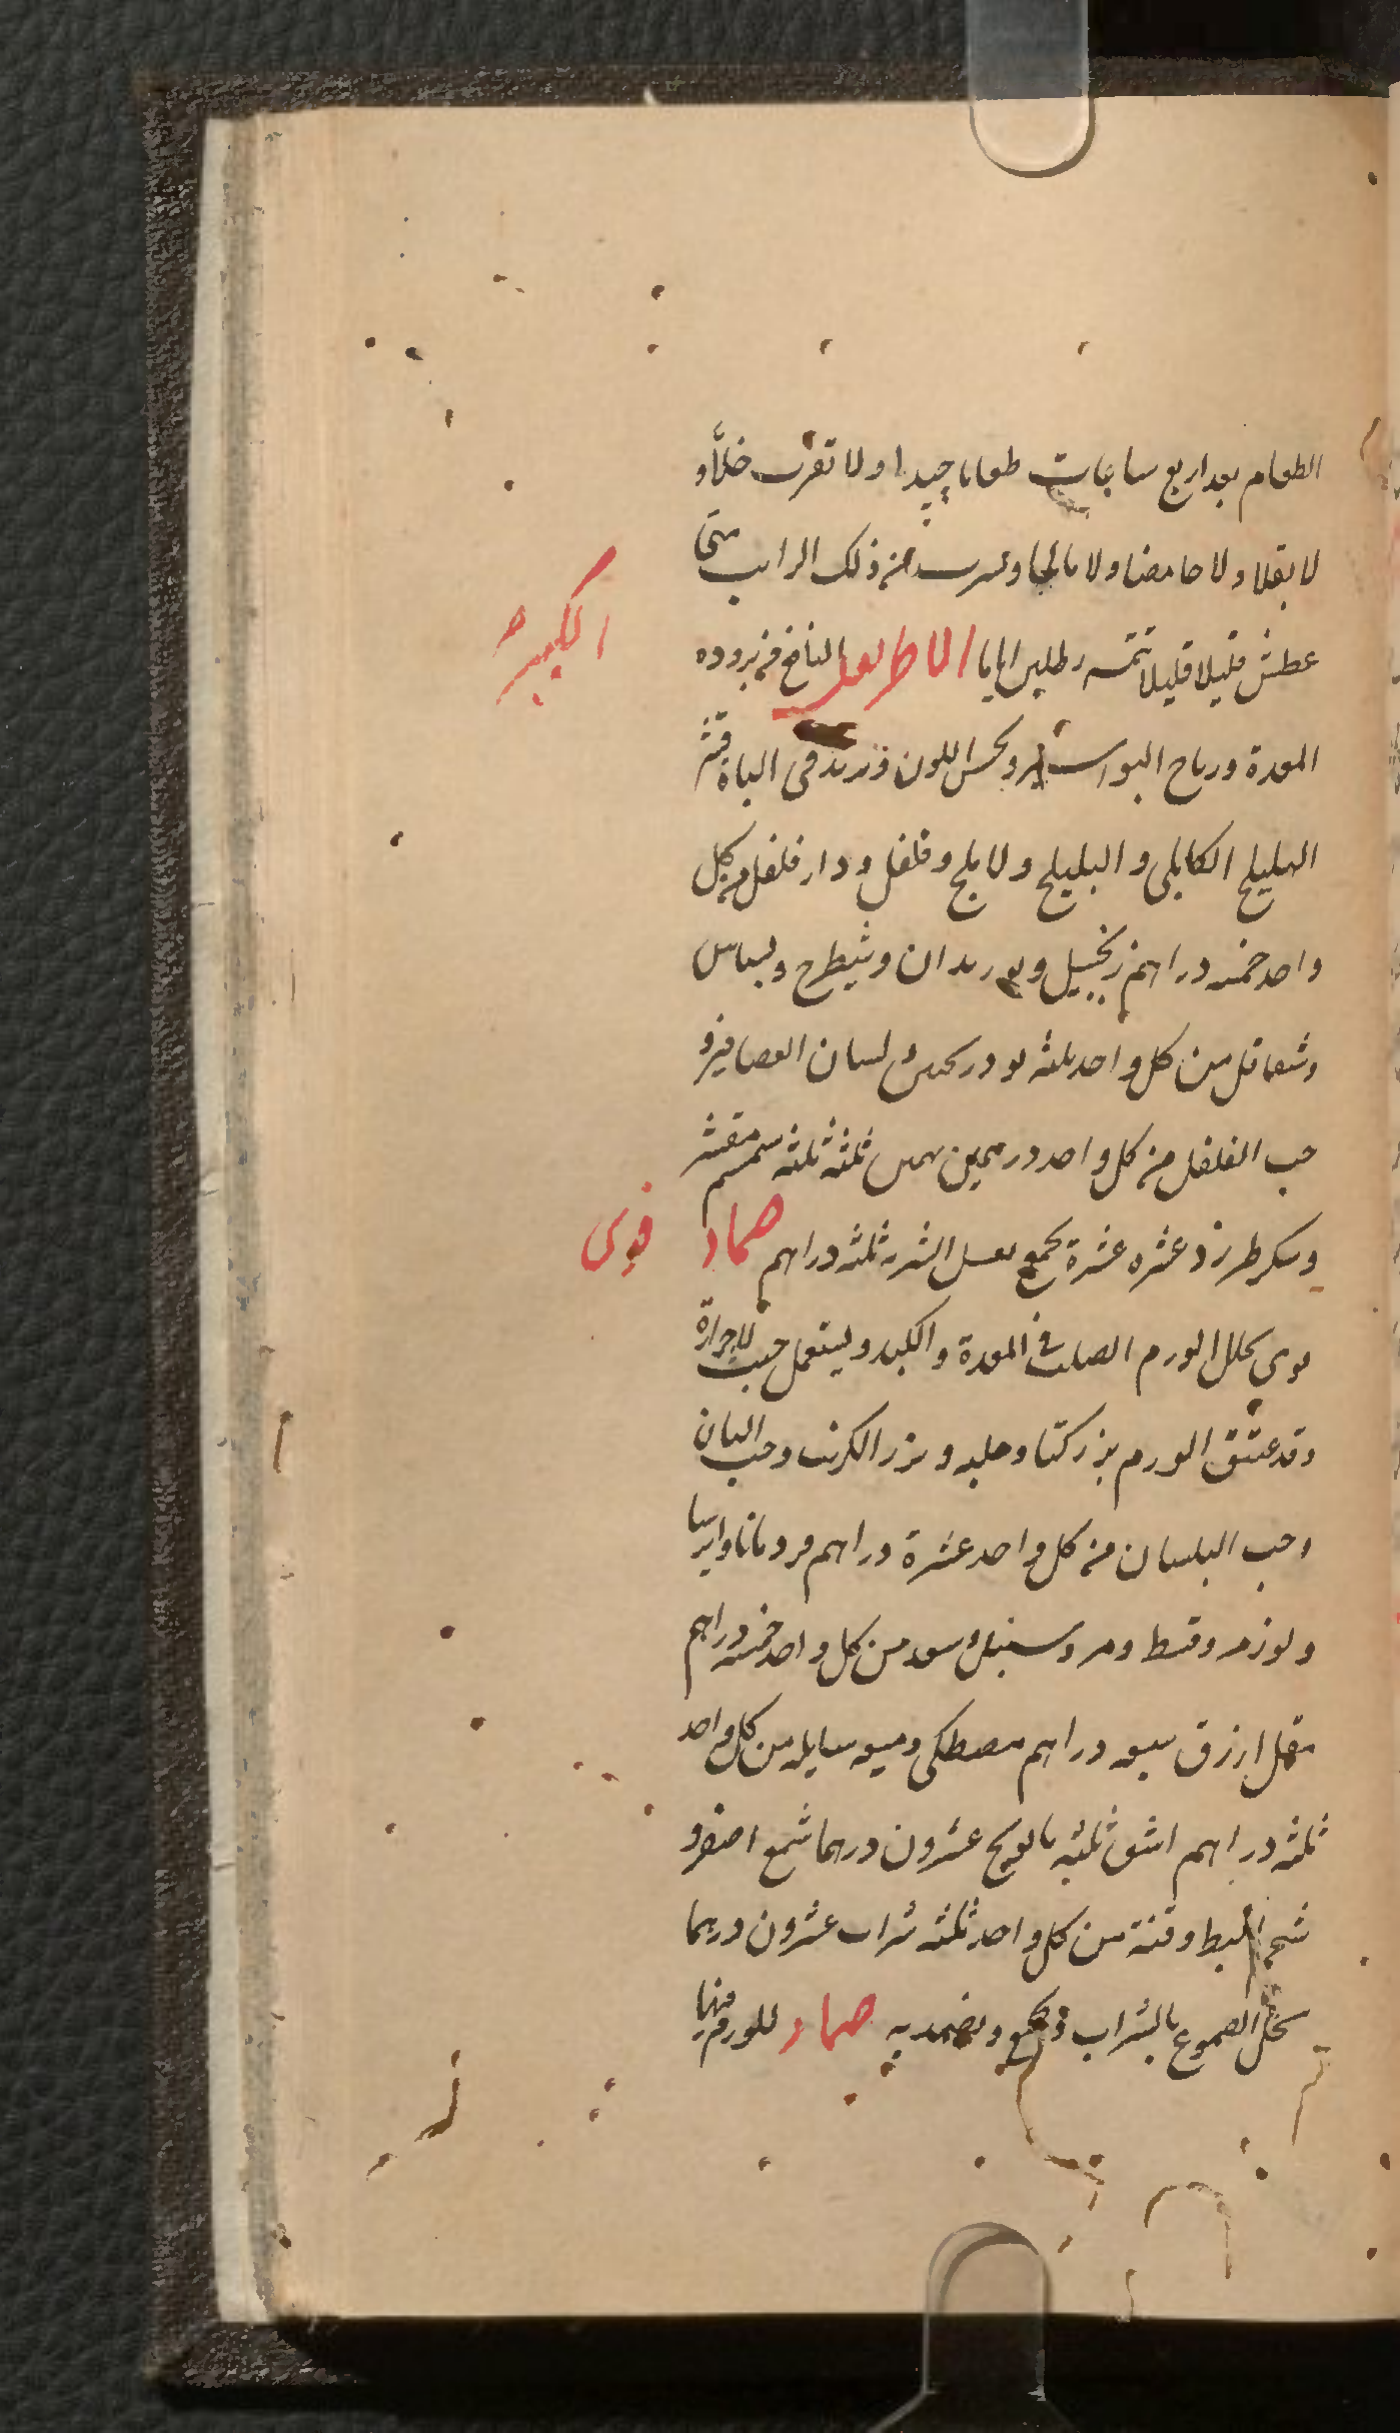 الطعام بعد اربع ساعات طعاما جيدا ولا تقرب خلاً و
لا بقلا ولا حامضا ولا مالحا وتشرب من ذلك الراب متى
عطش قليلا قليلا تتمه رطلين اياما الاطريفل النافع من بروده
الكبير
المعدة ورياح البواسير ويحسن اللون ويزيد في الباه قشر
الهليلج الكابلي والبليلج ولابلج وفلفل ودار فلفل من كل
واحد خمسه دراهم زنجبيل وبوزيدان وشيطرج وبسباس
وشقاقل من كل واحد ثلثه تودريحين ولسان العصافير و
حب الفلفل من كل واحد درهمين بهمن ثلثه ثلثه سمسم مقشر
وسكر طبرزد عشره عشرة يجمع بعسل الشربه ثلثه دراهم ضماد قوى
قوى يحلل الورم الصلب في المعدة والكبد ويستعمل حيث لا حرارة
وقد عتق الورم بزر كتان وحلبه وبزر الكرنب وحب البان
وحب البلسان من كل واحد عشرة دراهم قردمانا وايرسا
ولوز مر وقسط ومر وسنبل وسعد من كل واحد خمسه دراهم
مقل ازرق سبعه دراهم مصطكى وميعه سايله من كل واحد
ثلثه دراهم اشق ثلثه بابونج عشرون درهما شمع اصفر و
شحم البط وقنة من كل واحد ثلثه شراب عشرون درهما
تحل الصموغ بالشراب ويجمع ويضمد به ضماد للورم